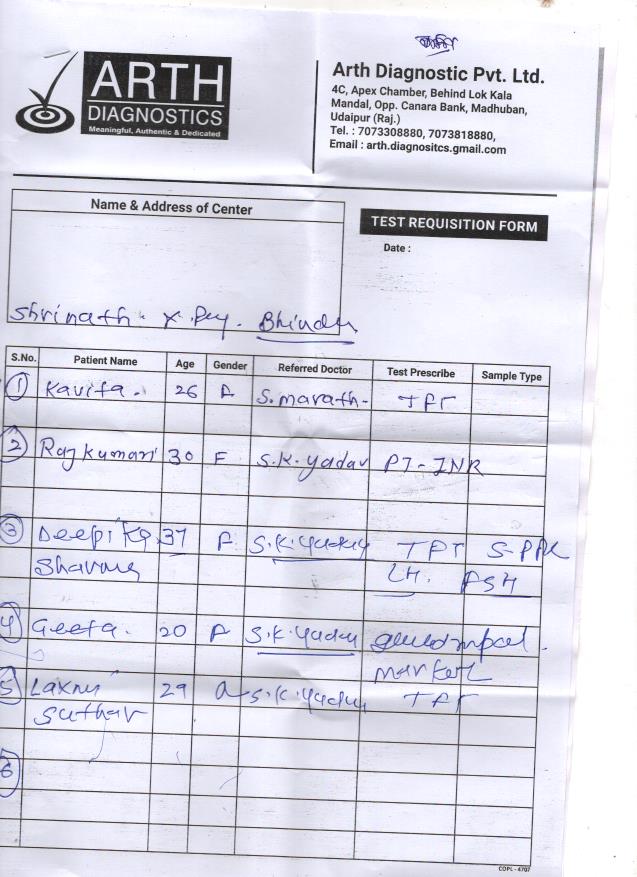 ARTH
DIAGNOSTICS
Meaningful, Authentic & Dedicated
Arth Diagnostic Pvt. Ltd.
4C, Apex Chamber, Behind Lok Kala
Mandal, Opp. Canara Bank, Madhuban,
Udaipur (Raj.)
Tel. : 7073308880, 7073818880,
Email : arth.diagnositcs.gmail.com
Name & Address of Center
TEST REQUISITION FORM
Date :
Shrinath X. Bhinder
S.No. Patient Name Age Gender Referred Doctor Test Prescribe Sample Type
1 Kavita. 26 F TFT
2 Rajkumari 30 F S.K. Yadav PT-INR
3 Deepika 37 F S.K. Yadav TFT S-PRL
Sharma LH. FSH
4 Geeta. 20 F S.K. Yadav
marker
5 Laxmi 29 S.K. Yadav TFT
Suthar
6
COPL - 4707